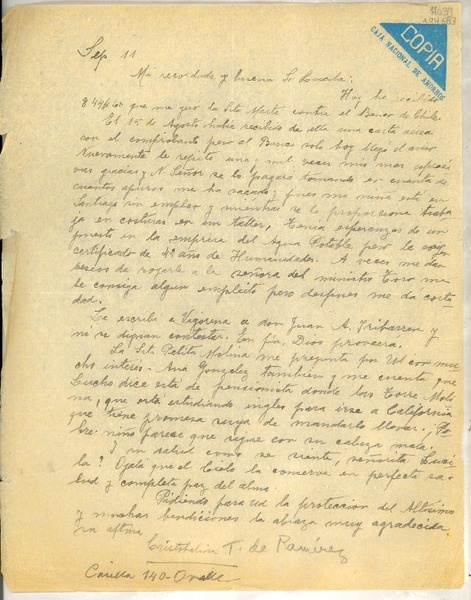 11033
COPIA
CAJA NACIONAL DE AHORROS
Sep 11
Mi recordada y buena Sta Lucila:
Hoy he recibido
que me giró la Sta Marta contra el Banco de Chile.
El 15 de Agosto había recibido de ella una carta
con el comprobante pero el Banco solo hoy llegó el aviso
Nuevamente le repito una y mil veces mis mas
vas gracias y N. Señor se lo pagará tomando en cuenta de
cuantos apuros me ha sacado, pues mi niña está en
Santiago sin empleo y mientras se lo proporciona traba
ja en costuras en un taller, tenía esperanzas de un
puesto en la empresa del Agua Potable pero le
certificado de 4º año de Humanidades. A veces me dan
deseos de rogarle a la señora del ministro Toro me
le consiga algun emplêito pero despues me da corte
dad.
Le escribí a Vigorena a don Juan A. Iribarren y
ni se dignan contestar. En fin, Dios proveerá.
La Sta Petita Molina me pregunta por Ud con mu
cho interes. Ana Gonzalez tambien y me cuenta que
Lucho dice está de pensionista donde las Torre Moli
na, que está estudiando ingles para irse a California
que tiene promesa suya de mandarlo llevar. ¡Po
bre niño parece que sigue con su cabeza mala.
Y su salud como se siente, señorita Luci
la? Ojalá que el Cielo la conserve en perfecta sa
lud y completa paz del alma.
Pidiendo para ud la proteccion del Altísimo
y muchas bendiciones la abraza muy agradecida
su aftma
Cristobalina T. de Ramírez
Casilla 140 - Ovalle